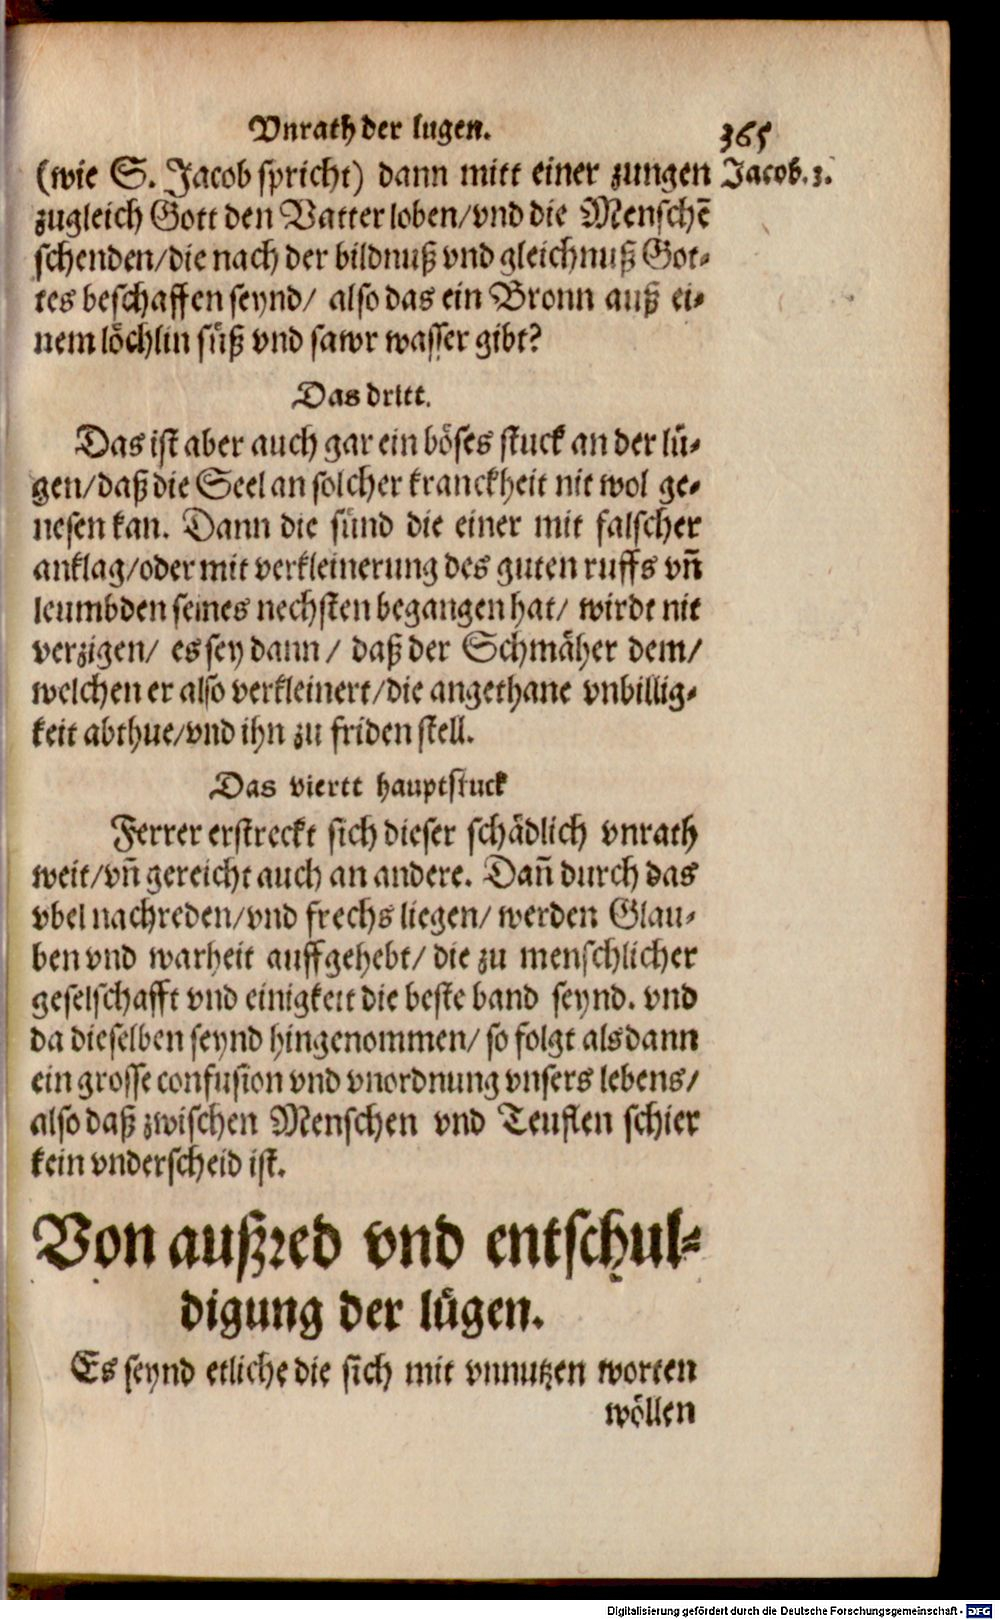 Vnrath der lugen. 365
(wie S. Jacob spricht) dann mitt einer zungen Jacob. 3.
zugleich Gott den Vatter loben/vnd die Menschē
schenden/die nach der bildnuß vnd gleichnuß Got-
tes beschaffen seynd/ also das ein Bronn auß ei-
nem löchlin süß vnd sawr wasser gibt?
Das dritt.
Das ist aber auch gar ein böses stuck an der lü-
gen/daß die Seel an solcher kranckheit nit wol ge-
nesen kan. Dann die sünd die einer mit falscher
anklag/oder mit verkleinerung des guten ruffs vñ
leumbden seines nechsten begangen hat/ wirdt nit
verzigen/ es sey dann/ daß der Schmäher dem/
welchen er also verkleinert/die angethane vnbillig-
keit abthue/vnd ihn zu friden stell.
Das viertt hauptstuck
Ferrer erstreckt sich dieser schädlich vnrath
weit/vñ gereicht auch an andere. Dañ durch das
vbel nachreden/vnd frechs liegen/ werden Glau-
ben vnd warheit auffgehebt/ die zu menschlicher
geselschafft vnd einigkeit die beste band seynd. vnd
da dieselben seynd hingenommen/ so folgt alsdann
ein grosse confusion vnd vnordnung vnsers lebens/
also daß zwischen Menschen vnd Teuflen schier
kein vnderscheid ist.
Von außred vnd entschul-
digung der lügen.
Es seynd etliche die sich mit vnnutzen worten
wöllen
Digitalisierung gefördert durch die Deutsche Forschungsgemeinschaft - DFG